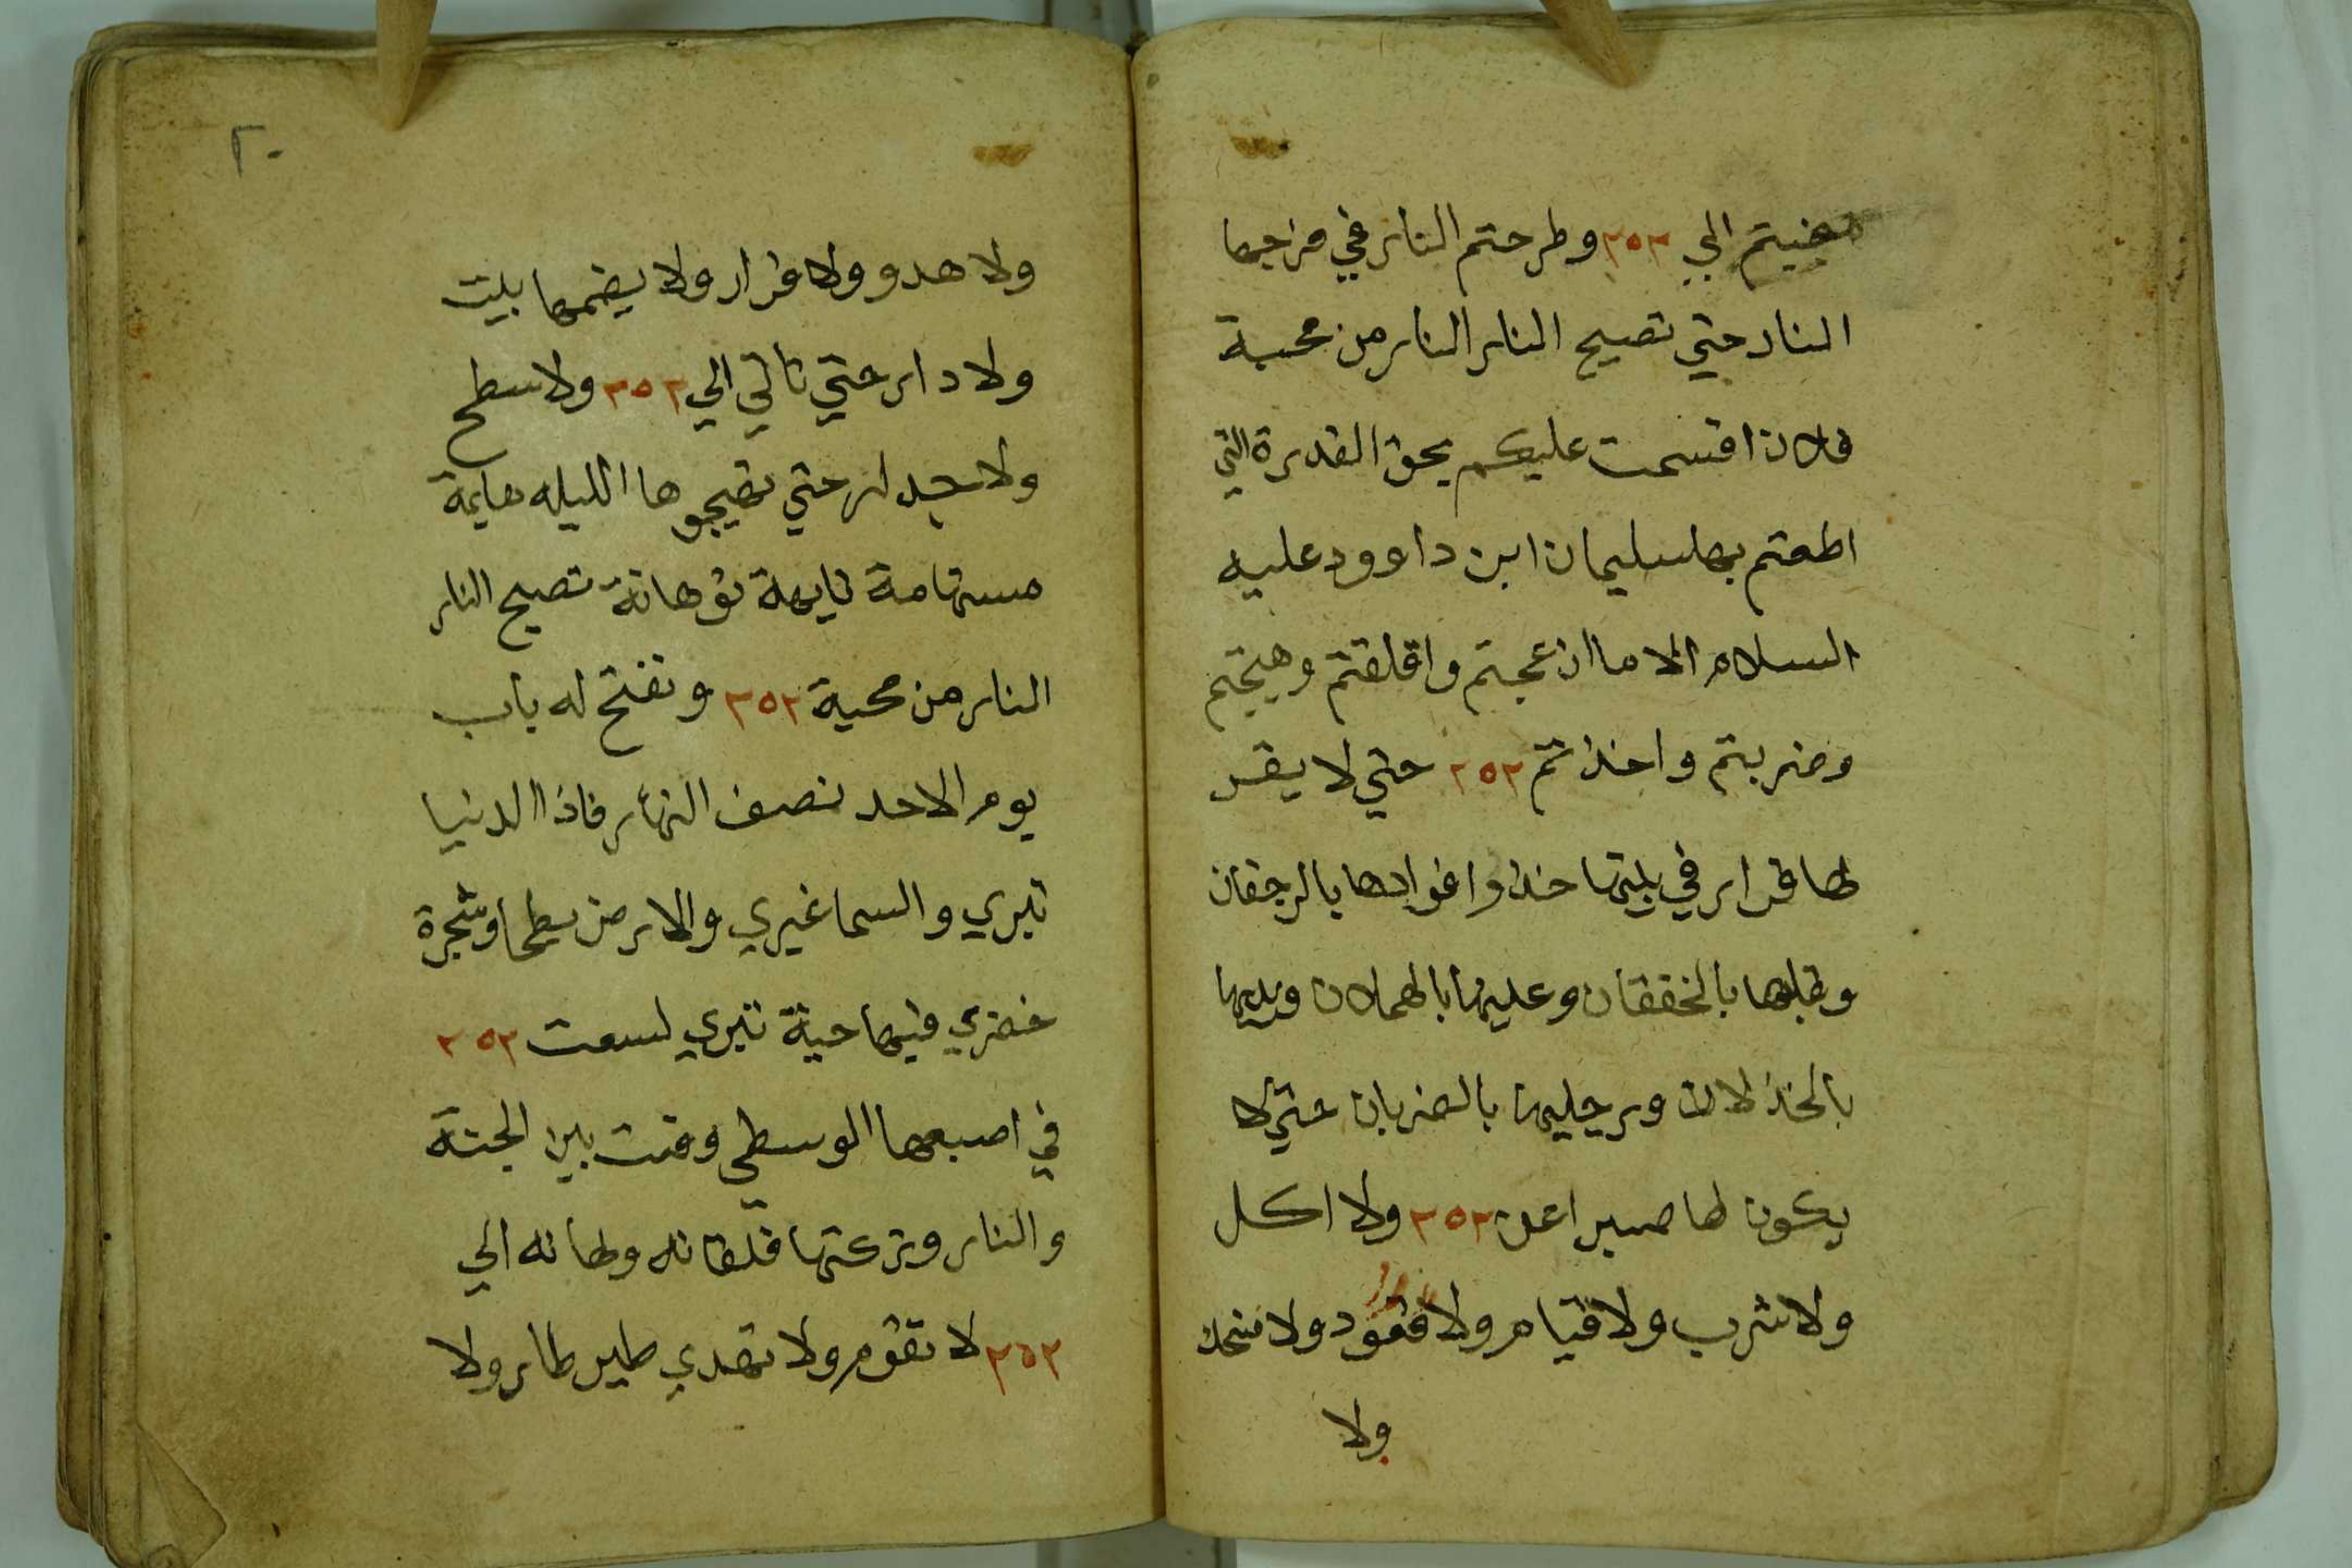 مضيتم الي ٢٥٣ وطرحتم النار في فرجها
النار حتي تصيح النار النار من محبة
فلان اقسمت عليكم بحق القدرة التي
اطعتم بها سليمان ابن داوود عليه
السلام الا ما ازعجتم واقلقتم وهيجتم
وضربتم واخذتم ٢٥٣ حتي لا يقر
لها قرار في بيتها خذوا فوادها بالرجفان
وقلبها بالخفقان وعينيها بالهملان ويديها
بالخذلان ورجليها بالضربان حتي لا
يكون لها صبر اعن ٢٥٣ ولا اكل
ولا شرب ولا قيام ولا قعود ولا ضحك
ولا
٢٠
ولا هدو ولا قرار ولا يضمها بيت
ولا دار حتي تاتي الي ٢٥٣ ولا سطح
ولا جدار حتي تهيجوها الليله هايمة
مستهامة تايهة توهانة تصيح النار
النار من محبة ٢٥٣ وتفتح له باب
يوم الاحد نصف النهار فاذا الدنيا
تبري والسما غبري والارض بطحا وشجرة
خضري فيها حية تبري لسعت ٢٥٣
في اصبعها الوسطي وقت بين الجنة
والنار وتركتها قلقانه ولهانه الي
٢٥٣ لا تقوم ولا تهدي طير طار ولا